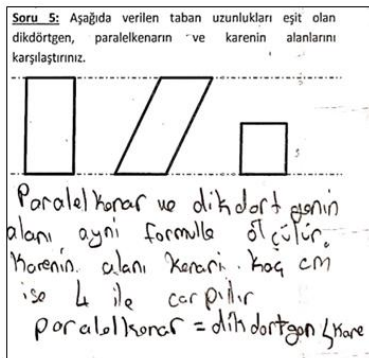 Soru 5: Aşağıda verilen taban uzunlukları eşit olan
dikdörtgen, paralelkenarın ve karenin alanlarını
karşılaştırınız.
Paralelkenar ve dikdortgenin
alanı ayni formulle ölçülür.
Karenin alanı kenarı kaç cm
ise 4 ile carpılır
paralelkenar = dikdortgen > kare